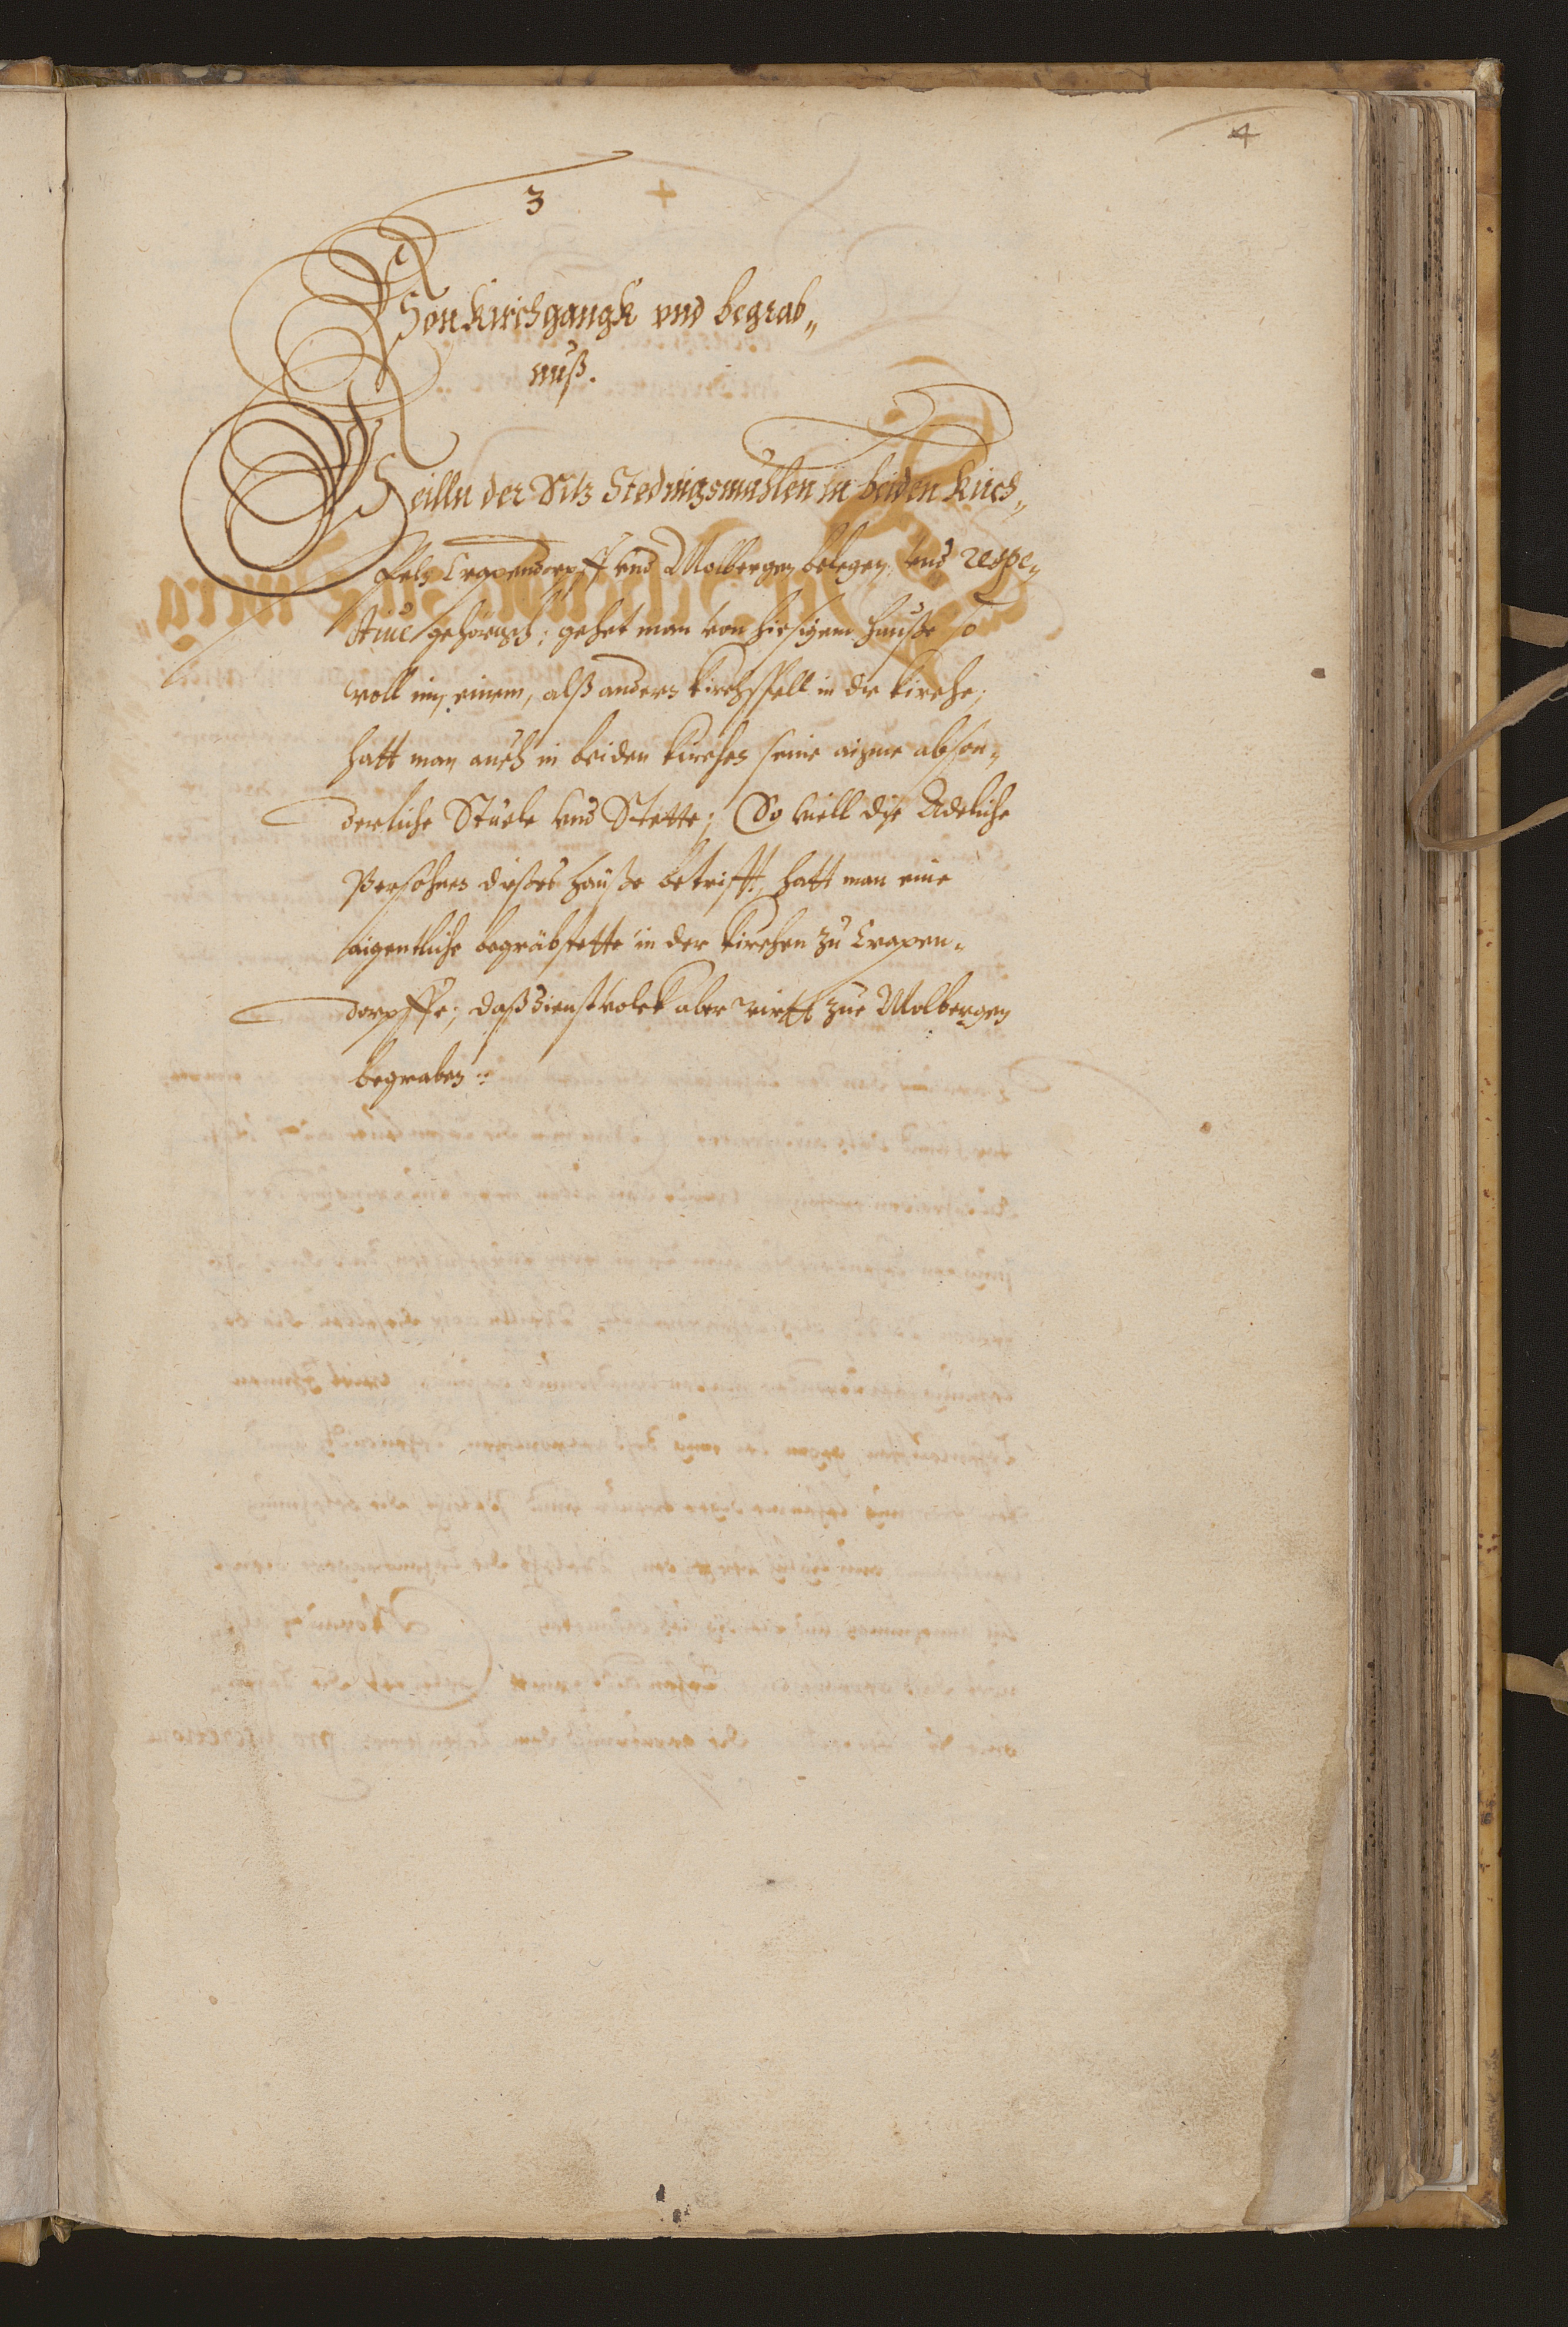 4
3
Von Kirchgangk vnd begrab„
nuß.
Weilln der Sitz Stedingsmuhlen in beiden Kirch„
spels Crapendorpff vnd Molbergen belegen, vnd respe„
ctiue gehörigh; gehet man von hiesigem Hauße so
woll im einem, alß anders Kirchspell in die Kirche,
hatt man auch in beiden Kirchen seine aigne abson„
derliche Stuele vnd Stette; So viell die Adeliche
Persohnen dießes Hauße betrifft, hatt man eine
aigentliche begräbstette in der Kirchen zu Crapen„
dorpffe; daß dienstvolck aber wirtt zue Molbergen
begraben.